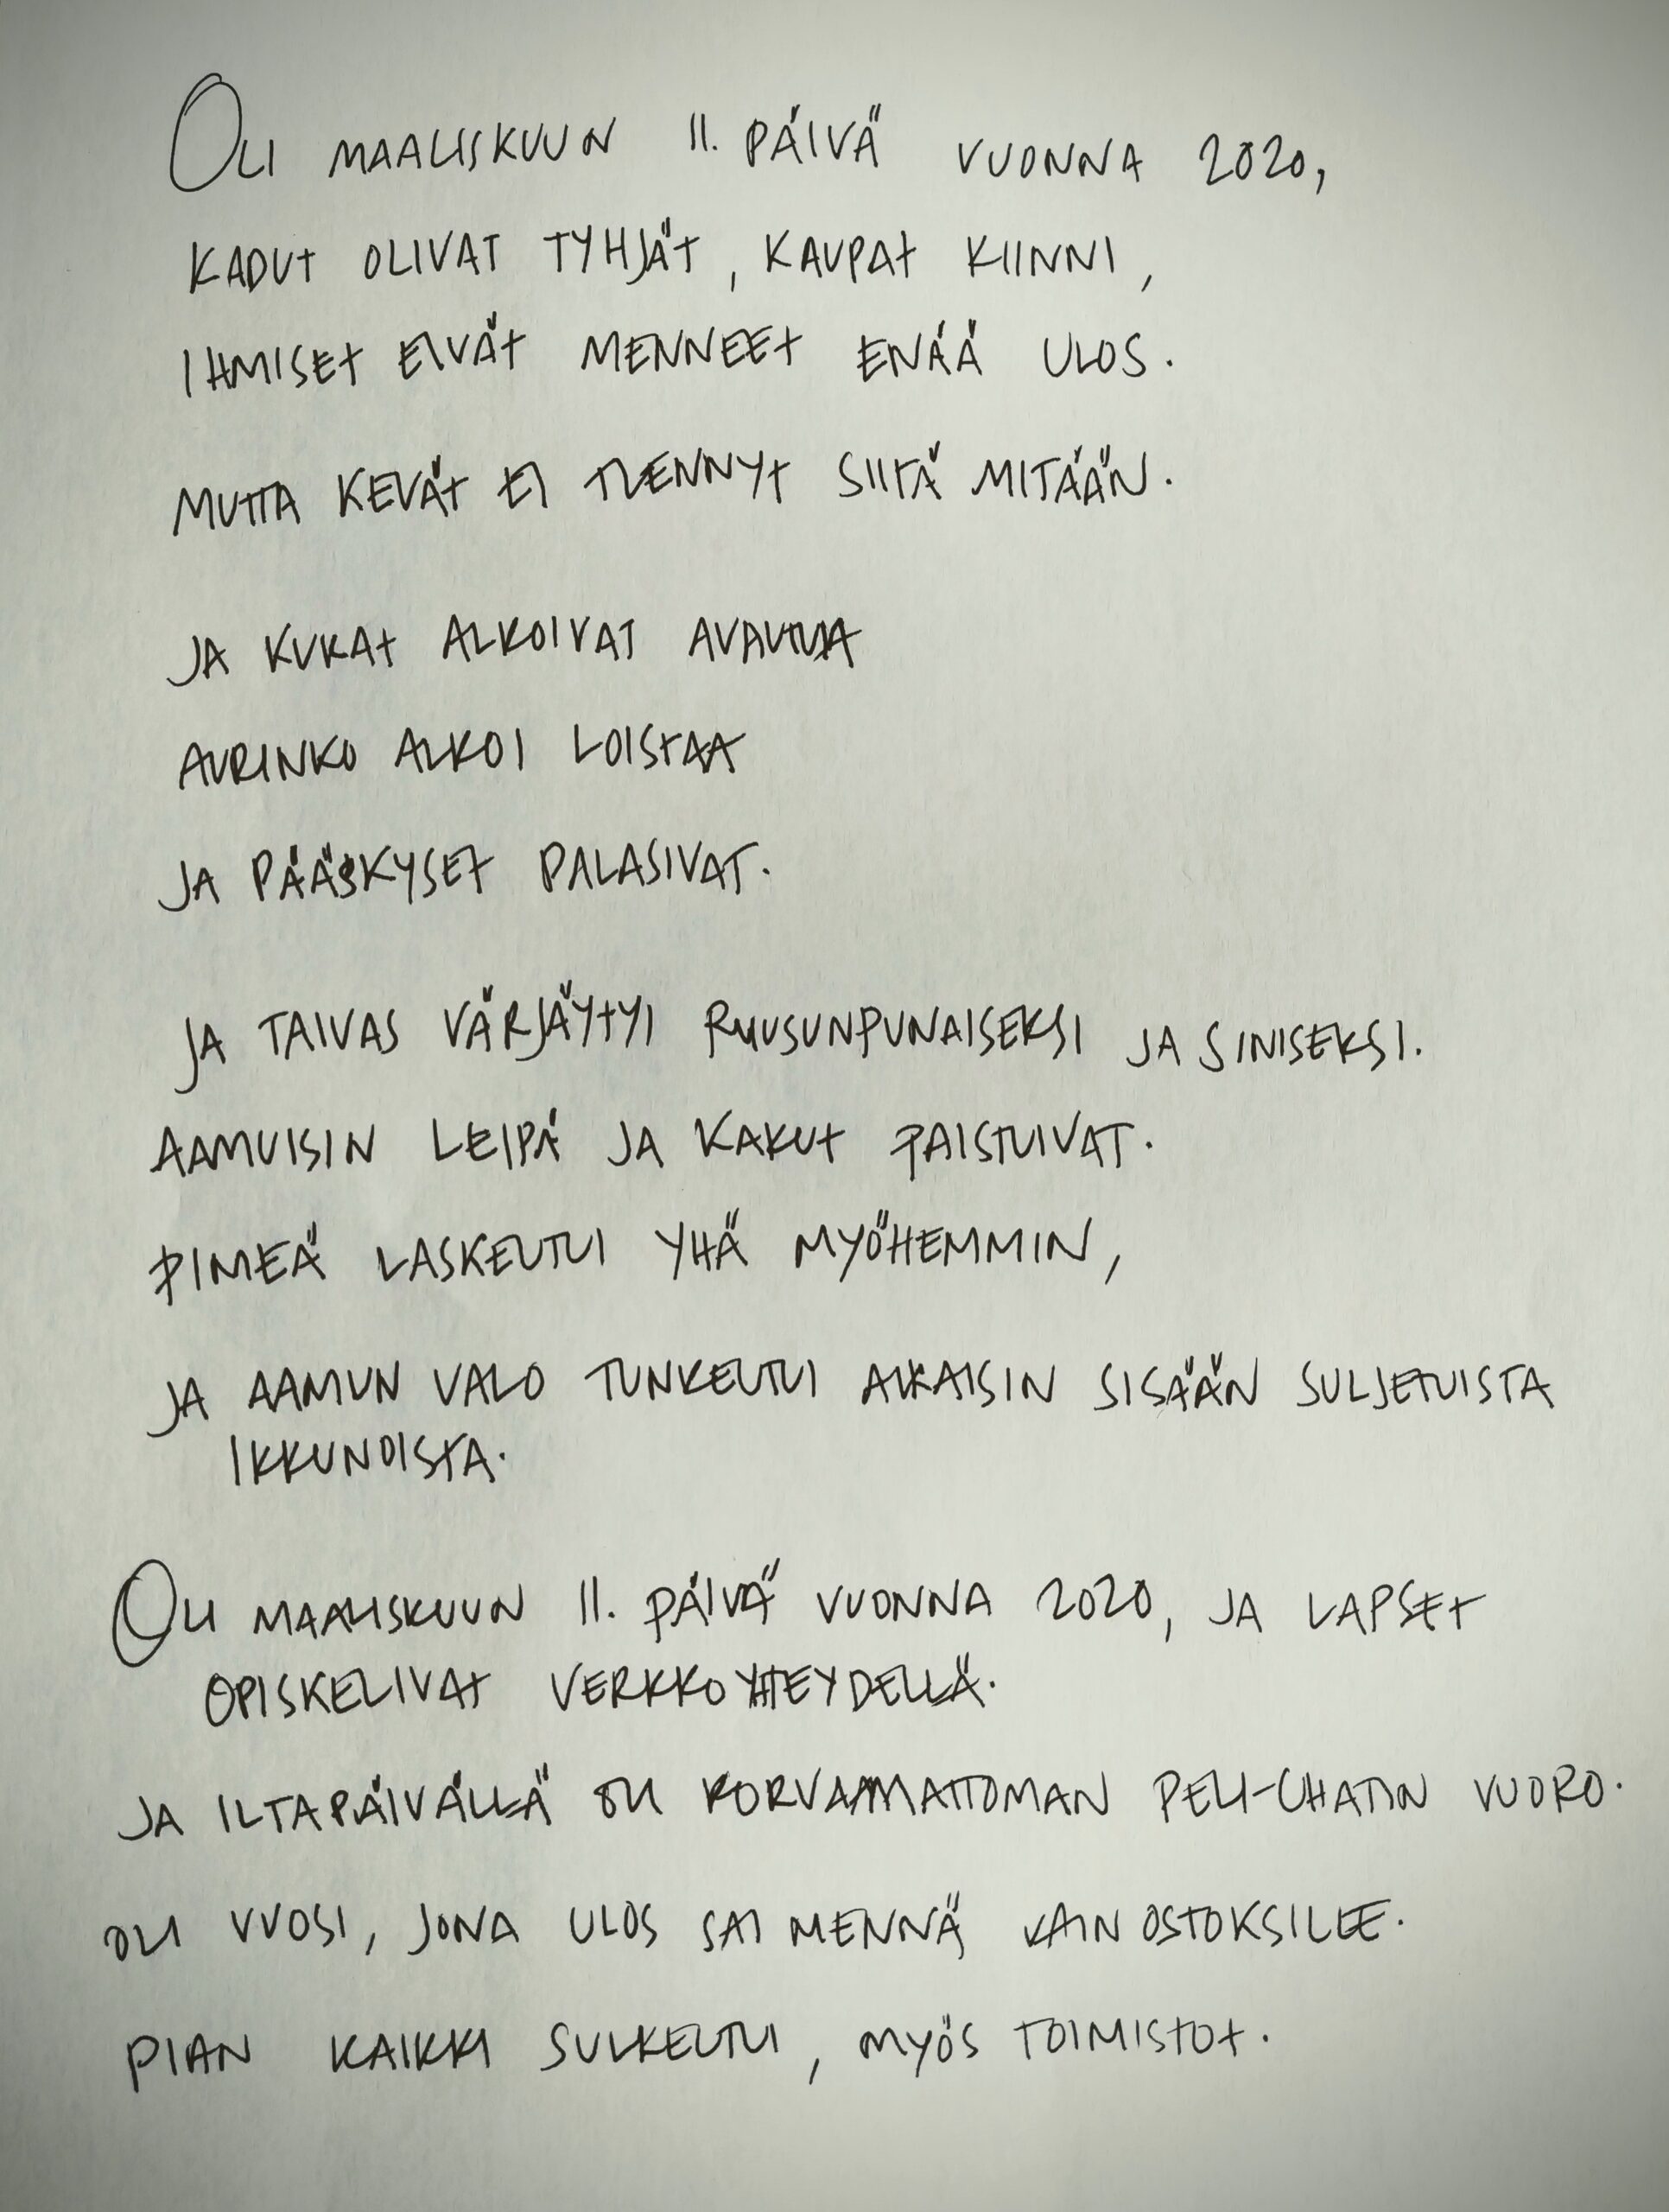 OLI MAALISKUUN 11. PÄIVÄ VUONNA 2020,
KADUT OLIVAT TYHJÄT, KAUPAT KIINNI,
IHMISET EIVÄT MENNEET ENÄÄ ULOS.
MUTTA KEVÄT EI TIENNYT SIITÄ MITÄÄN.
JA KUKAT ALKOIVAT AVAUTUA
AURINKO ALKOI LOISTAA
JA PÄÄSKYSET PALASIVAT.
JA TAIVAS VÄRJÄYTYI RUUSUNPUNAISEKSI JA SINISEKSI.
AAMUISIN LEIPÄ JA KAKUT PAISTUIVAT.
PIMEÄ LASKEUTUI YHÄ MYÖHEMMIN,
JA AAMUN VALO TUNKEUTUI AIKAISIN SISÄÄN SULJETUISTA
IKKUNOISTA.
OLI MAALISKUUN 11. PÄIVÄ VUONNA 2020, JA LAPSET
OPISKELIVAT VERKKOYHTEYDELLÄ.
JA ILTAPÄIVÄLLÄ OLI KORVAAMATTOMAN PELI-CHATIN VUORO.
OLI VUOSI, JONA ULOS SAI MENNÄ VAIN OSTOKSILLE.
PIAN KAIKKI SULKEUTUI, MYÖS TOIMISTOT.